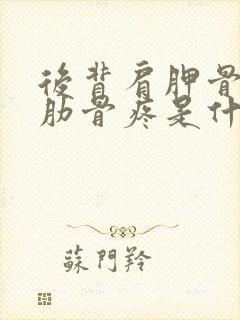 後背肩胛骨
肋骨疼是什
蘇門羚